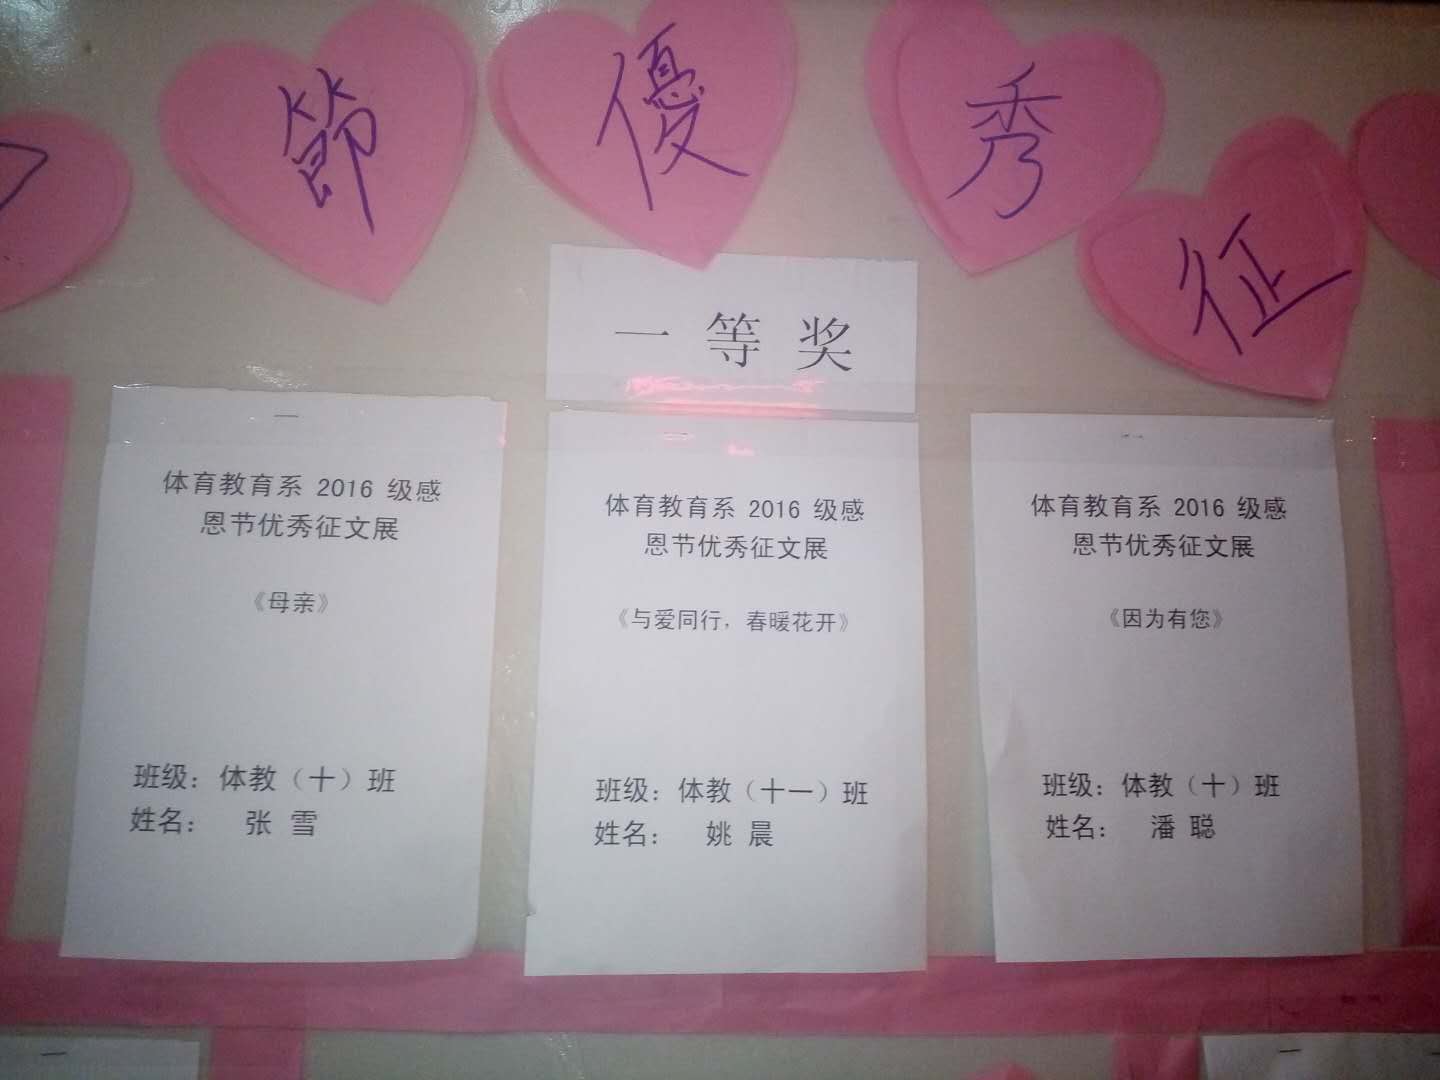 節 優 秀 征
一 等 奖
体育教育系 2016 级感
恩节优秀征文展
《母亲》
班级：体教（十）班
姓名： 张 雪
体育教育系 2016 级感
恩节优秀征文展
《与爱同行，春暖花开》
班级：体教（十一）班
姓名： 姚 晨
体育教育系 2016 级感
恩节优秀征文展
《因为有您》
班级：体教（十）班
姓名： 潘 聪